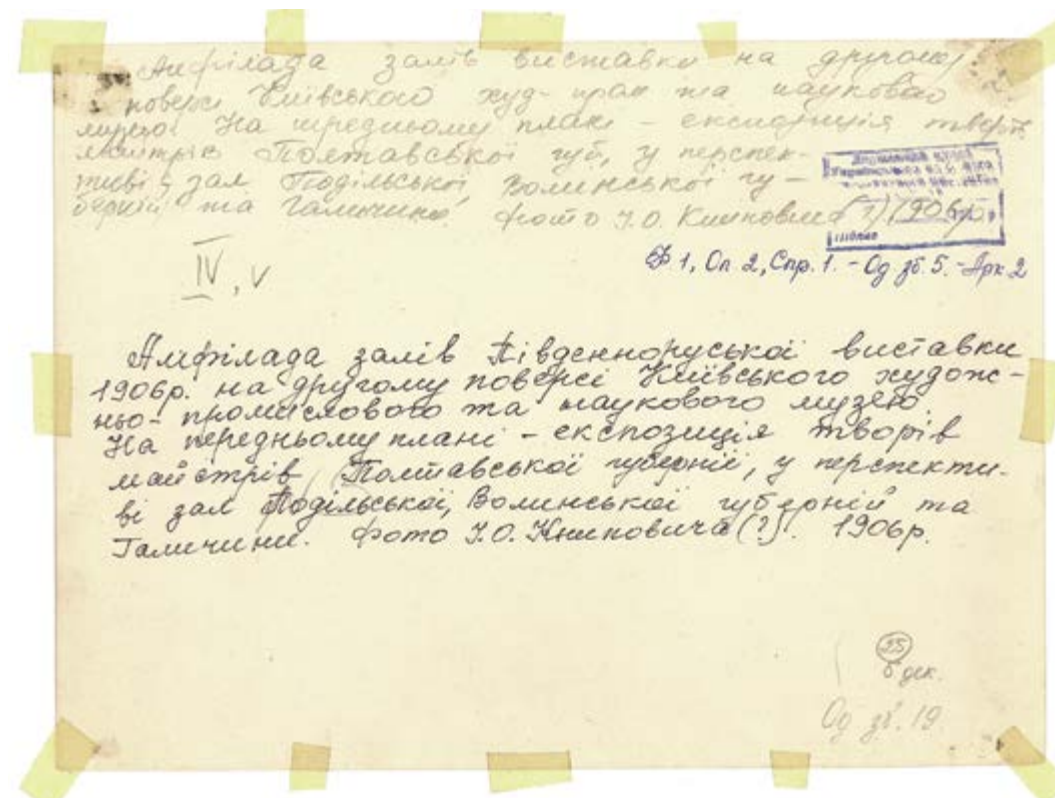 Анфілада залів виставки на другому
поверсі Київського худ-пром та наукового
музею. На передньому плані - експозиція творів
майстрів Полтавської губ, у перспек-
тиві зал Подільської, Волинської гу-
берній та Галичини. Фото І.О. Книповича (?) 1906р.
IV, V
Ф 1, Оп. 2, Спр. 1. - Од зб. 5. - Арк 2
Анфілада залів Південноруської виставки
1906р. на другому поверсі Київського худож-
ньо-промислового та наукового музею.
На передньому плані - експозиція творів
майстрів Полтавської губернії, у перспекти-
ві зал Подільської, Волинської губерній та
Галичини. Фото І.О. Книповича (?). 1906р.
25
дек.
Од зб. 19.